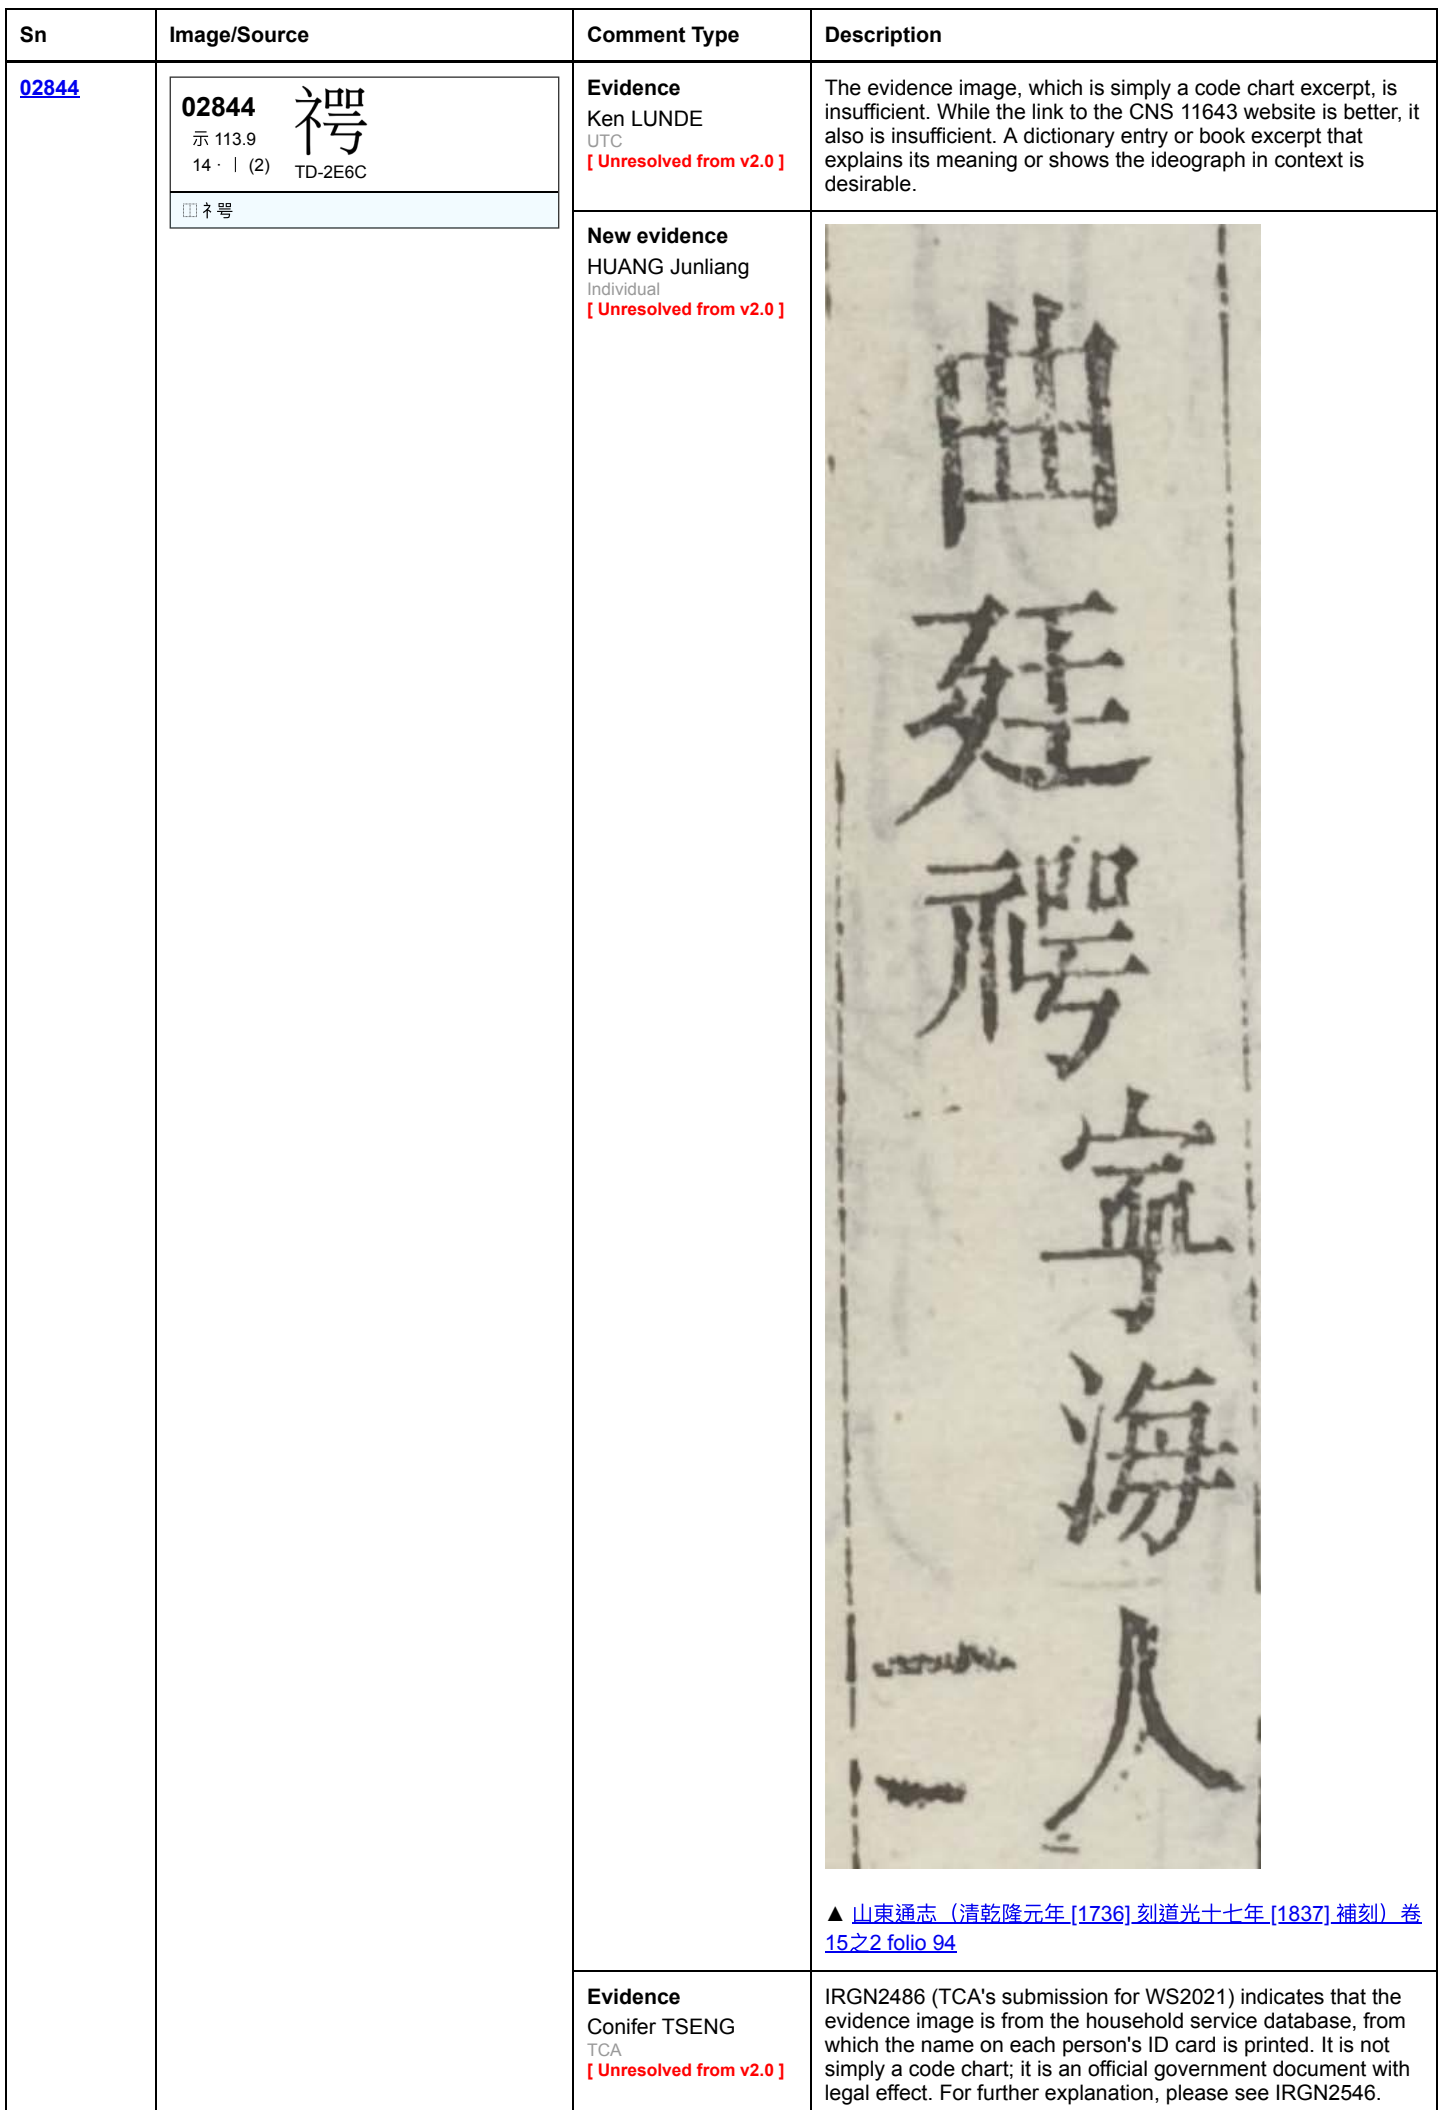 Sn Image/Source Comment Type Description
02844
02844
示 113.9
14 · 丨 (2)
TD-2E6C
⿰礻咢
Evidence
Ken LUNDE
UTC
[ Unresolved from v2.0 ]
The evidence image, which is simply a code chart excerpt, is
insufficient. While the link to the CNS 11643 website is better, it
also is insufficient. A dictionary entry or book excerpt that
explains its meaning or shows the ideograph in context is
desirable.
New evidence
HUANG Junliang
Individual
[ Unresolved from v2.0 ]
曲廷⿰礻咢寧海人
▲ 山東通志（清乾隆元年 [1736] 刻道光十七年 [1837] 補刻）卷
15之2 folio 94
Evidence
Conifer TSENG
TCA
[ Unresolved from v2.0 ]
IRGN2486 (TCA's submission for WS2021) indicates that the
evidence image is from the household service database, from
which the name on each person's ID card is printed. It is not
simply a code chart; it is an official government document with
legal effect. For further explanation, please see IRGN2546.